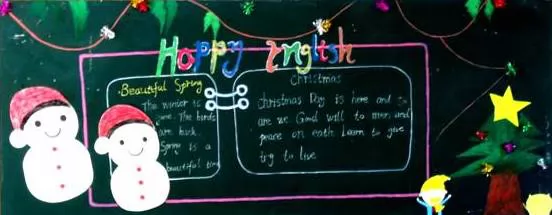 Hoppy English
Beautiful Spring
The winter is
gone. The birds
are back.
Spring is a
beautiful time
Christmas
christmas Day is here and so
are we Good will to men and
peace on eath Learn to give
try to live